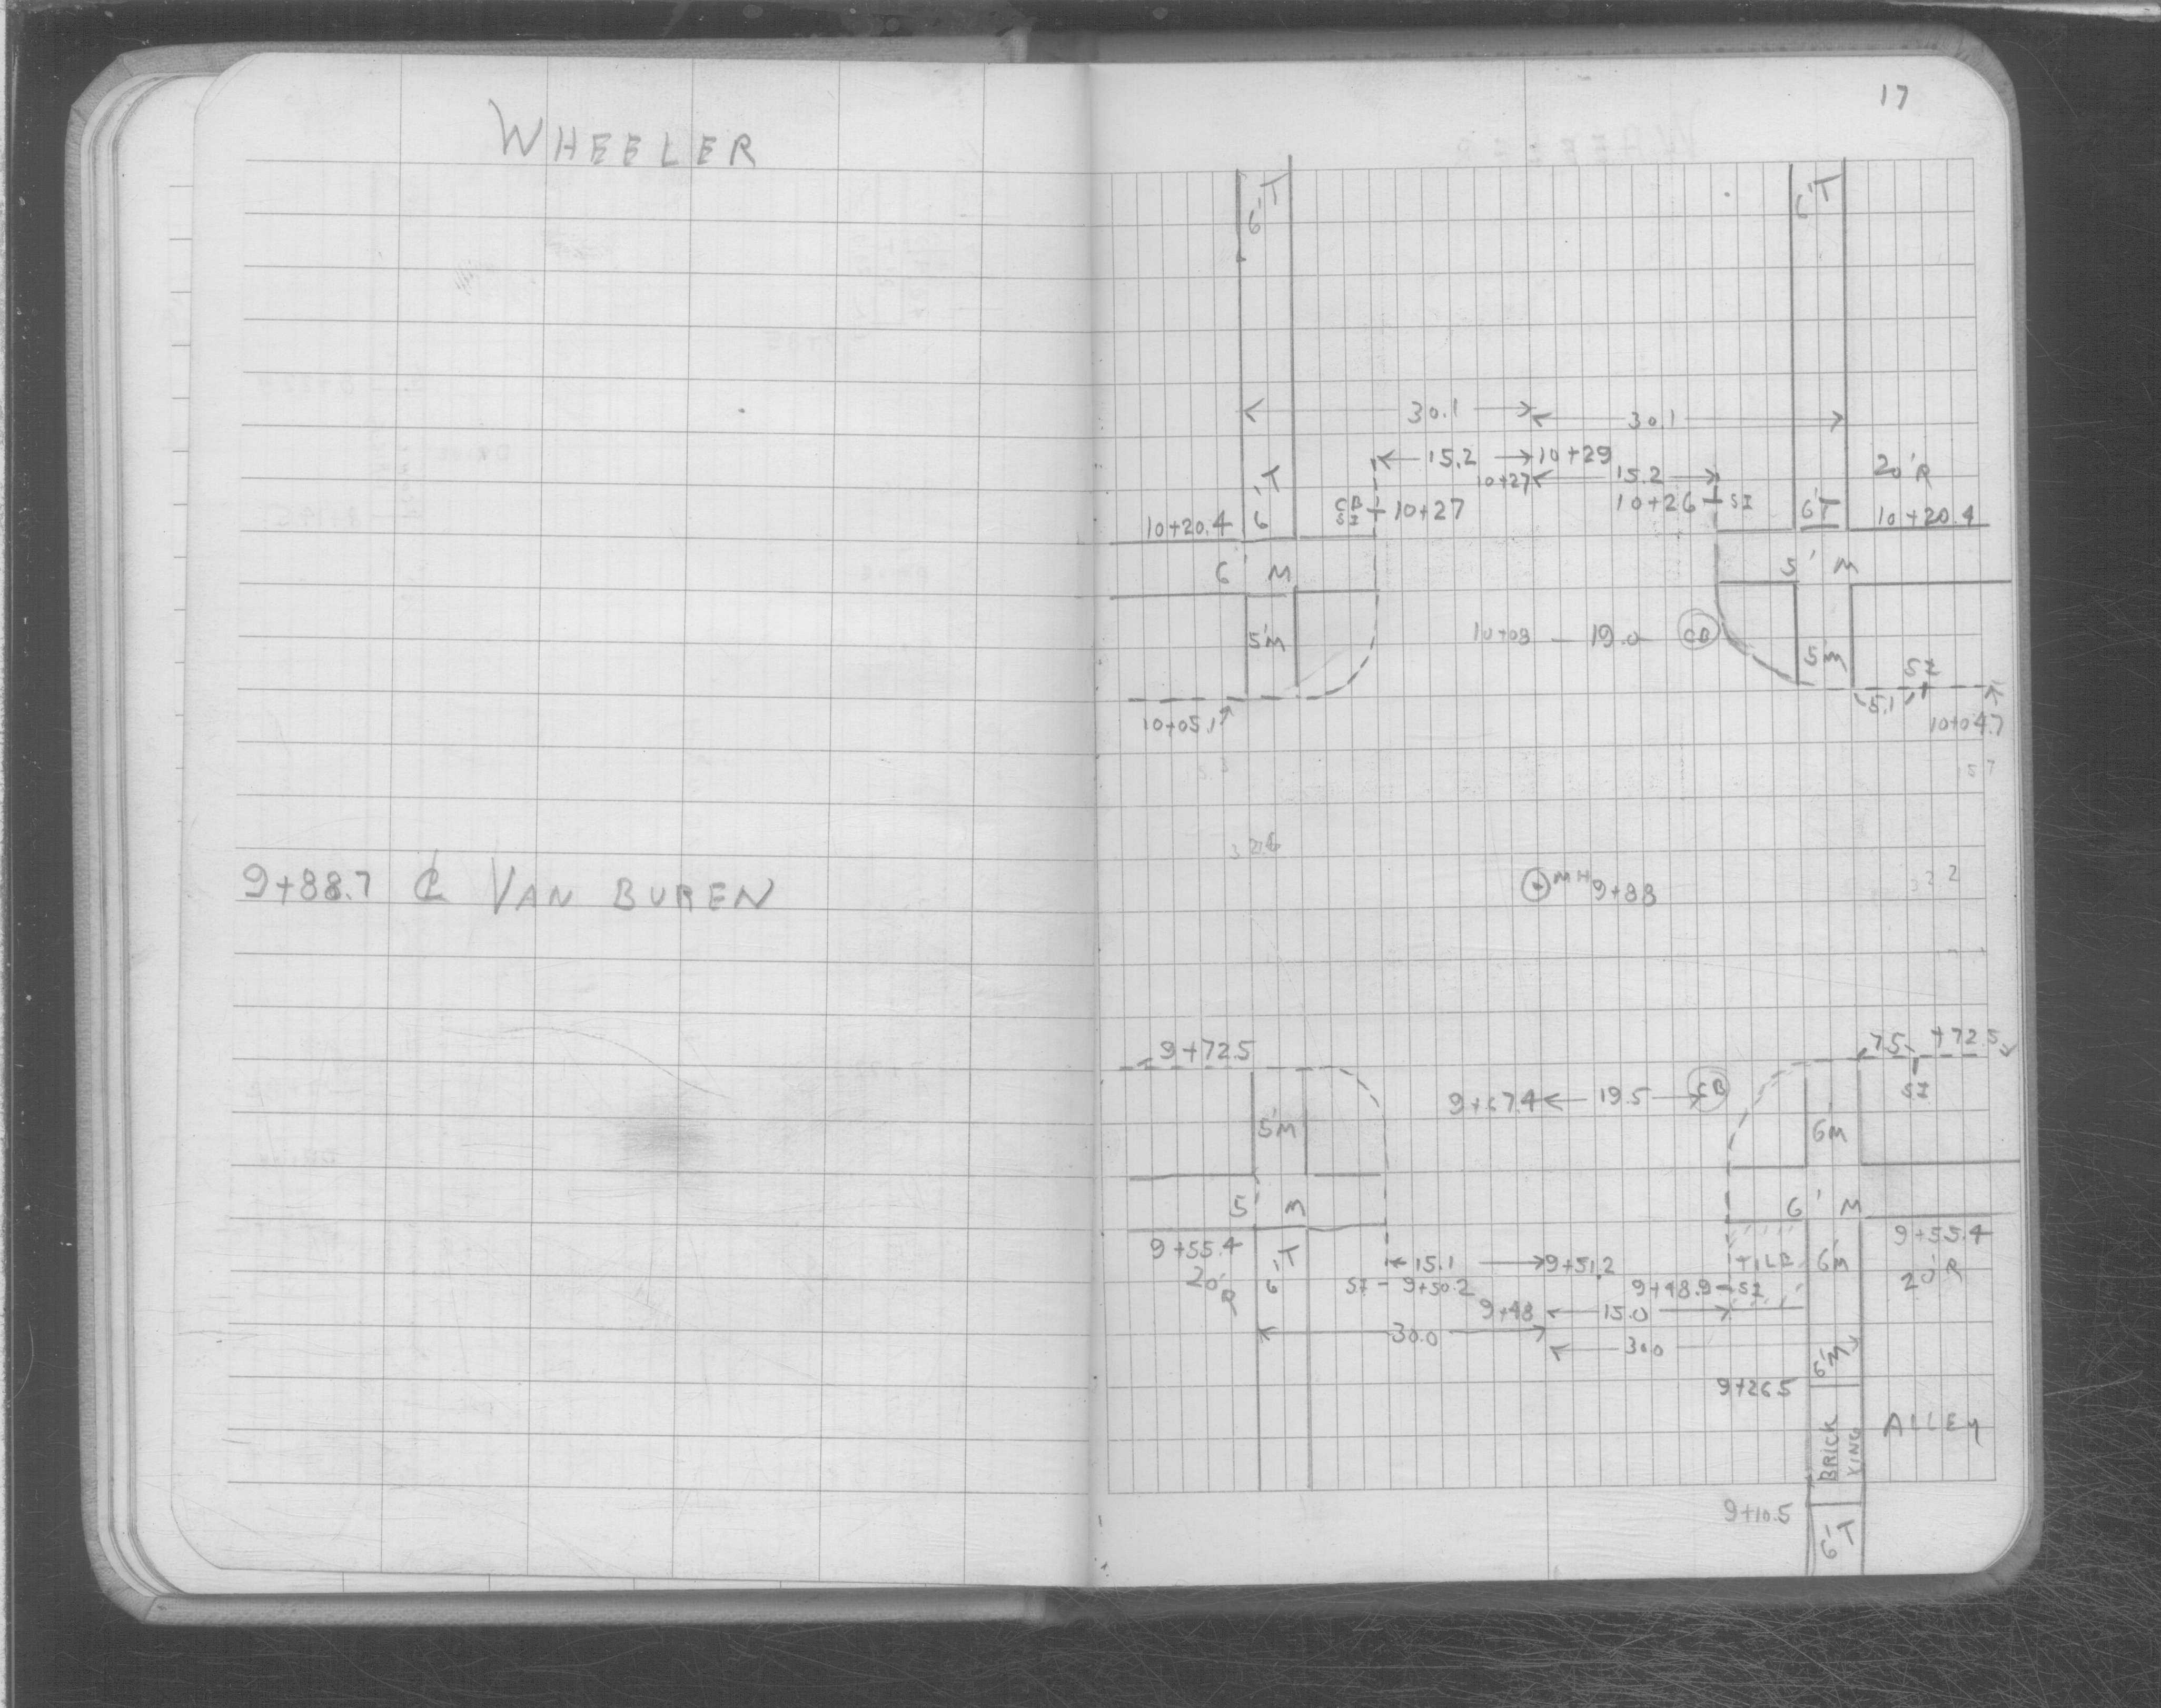 WHEELER
9+88.7 ℄ VAN BUREN
17
6'T
6'T
30.1
30.1
15.2 10+29
10+27 15.2
20'R
10+20.4 6'T
CB
SI 10+27
10+26 SI
6'T 10+20.4
6' M
5' M
5'M
10+09 — 19.0 CB
5'M
SI
5.1
10+05.1
10+04.7
MH 9+88
9+72.5
7.5 +72.5
SI
9+67.4 19.5 CB
5'M
6'M
5' M
6' M
9+55.4
20'R
6'T
15.1 9+51.2
SI - 9+50.2
9+48.9 SI
TILE
6'M
9+55.4
20'R
9+48 15.0
30.0
30.0
6'M
9+26.5
BRICK
ALLEY
9+10.5
6'T